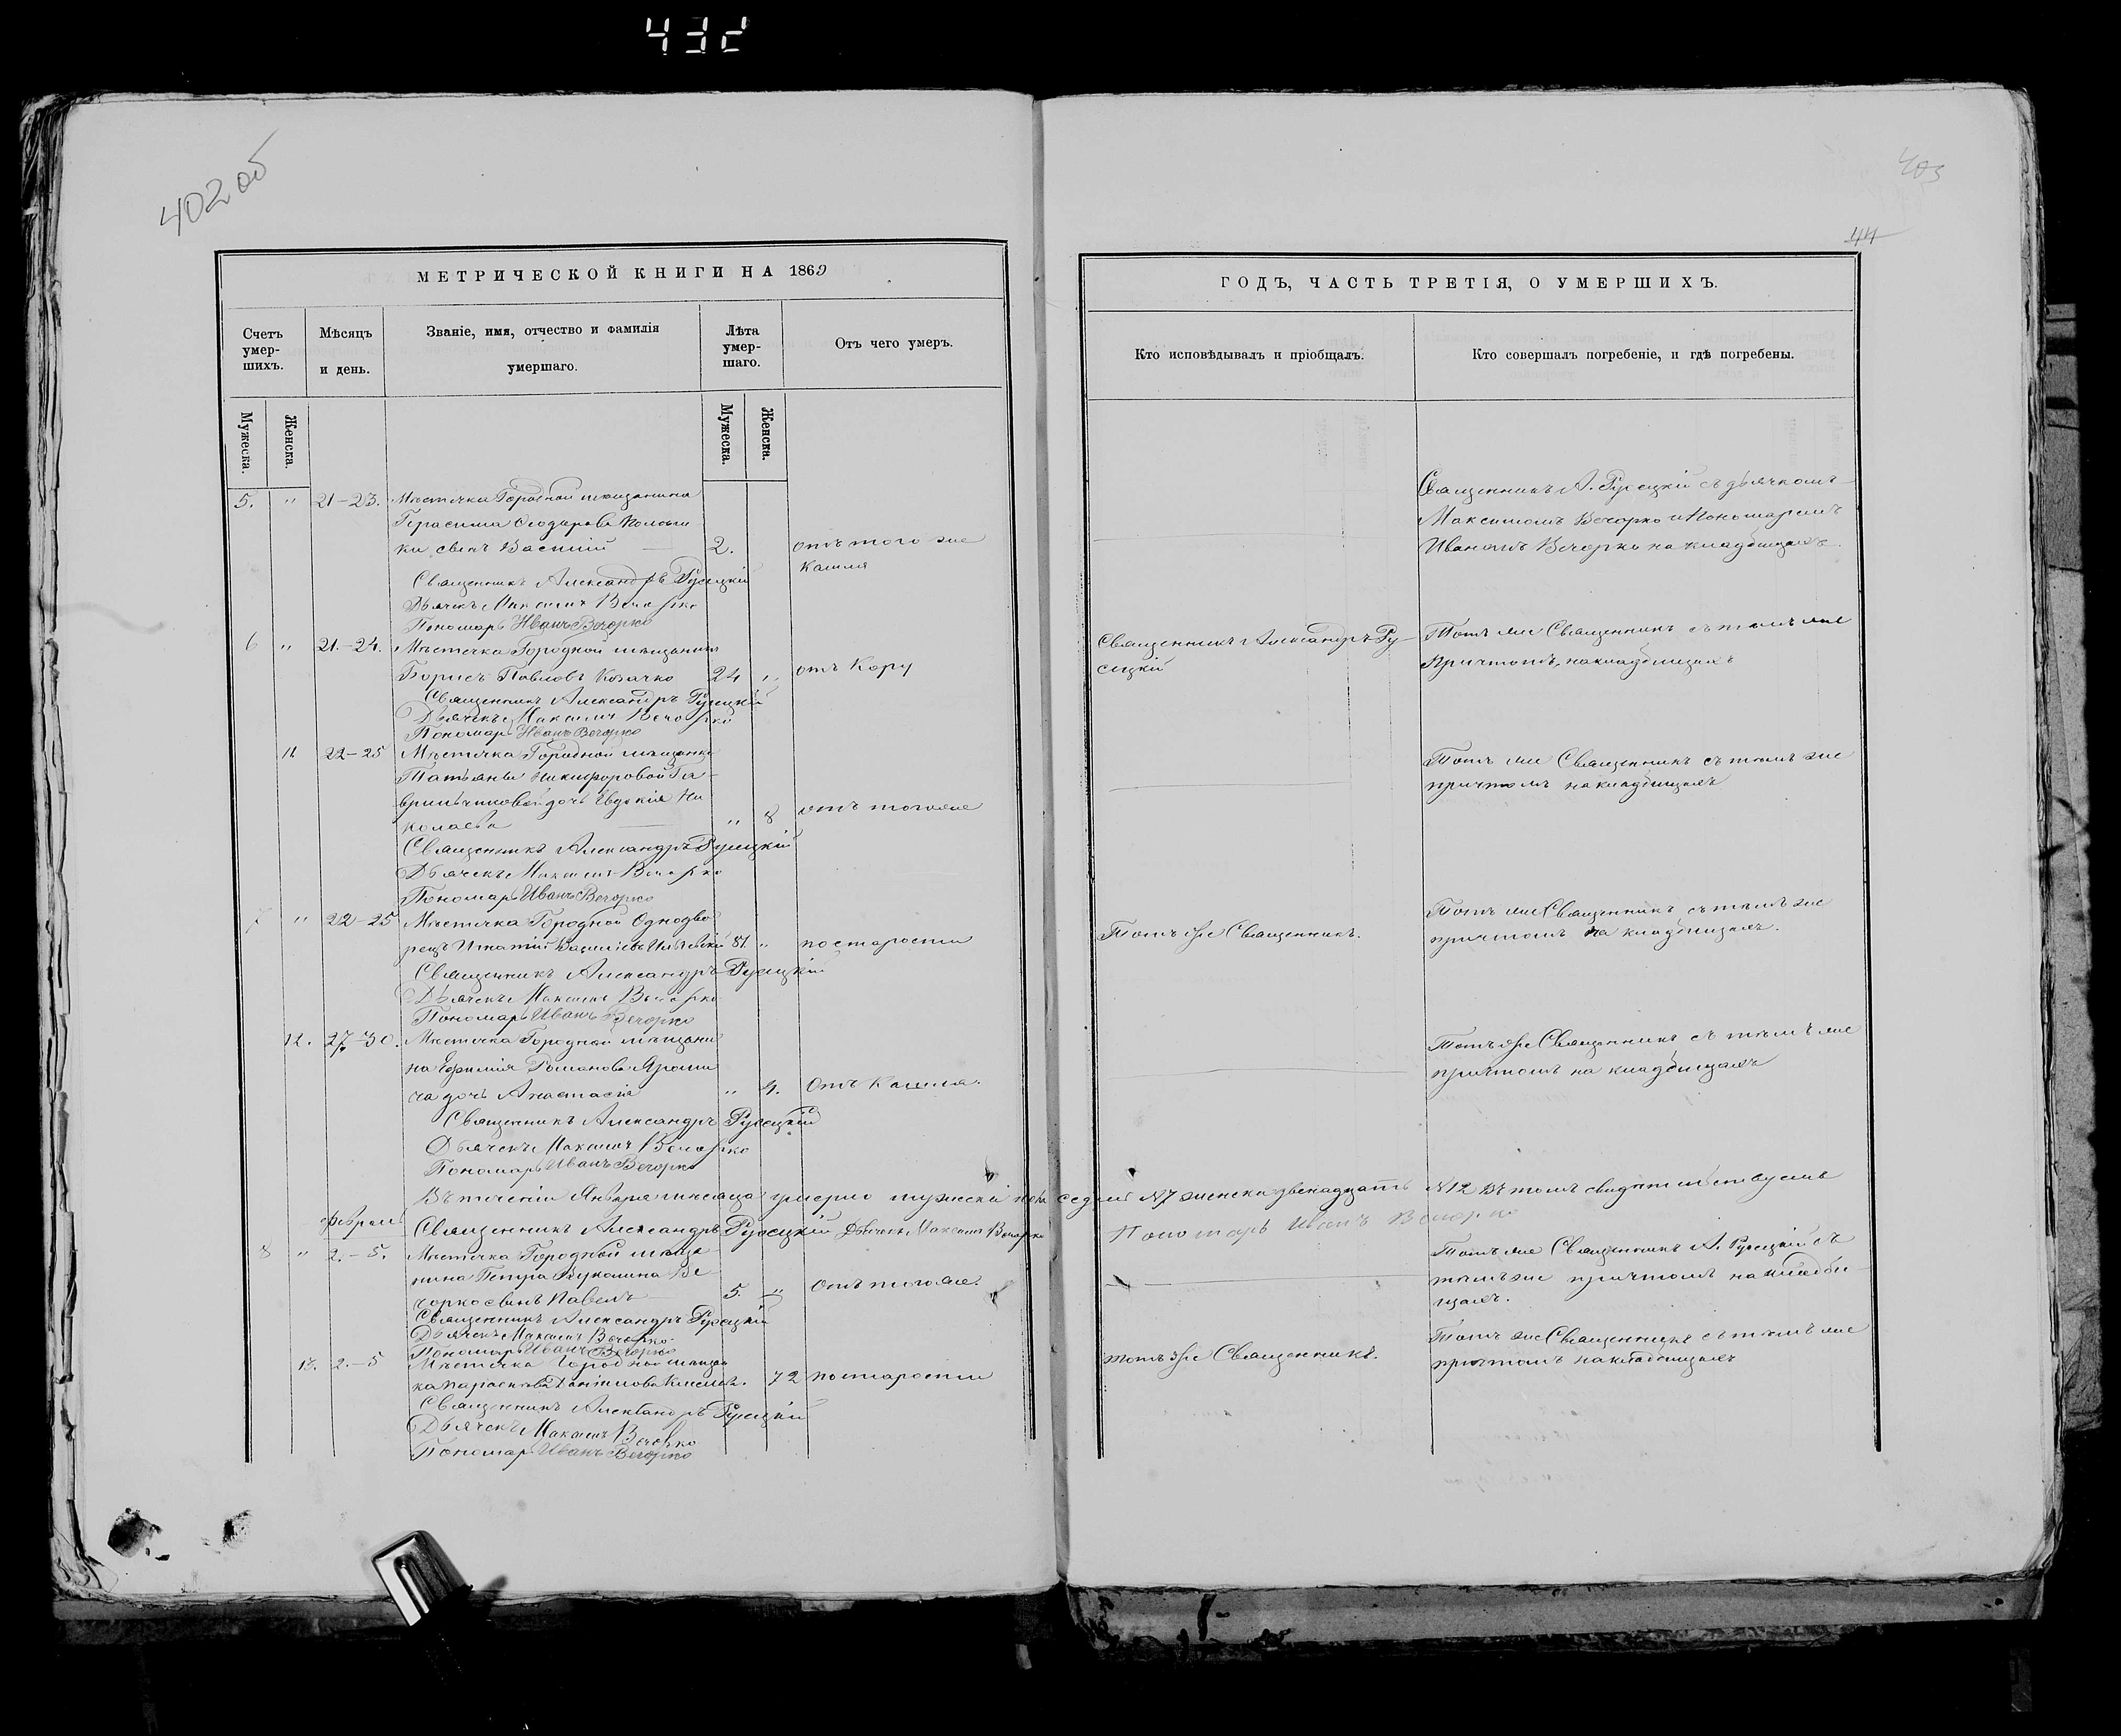 432
402 об
403
44
МЕТРИЧЕСКОЙ КНИГИ НА 1869
Счетъ умер-шихъ.
Мѣсяцъ и день.
Званіе, имя, отчество и фамилія умершаго.
Лѣта умер-шаго.
Отъ чего умеръ.
Мужеска.
Женска.
Мужеска.
Женска.
5. " 21-23. Мѣстечка Городной мѣщанина
Герасима Ѳеодорова
сынъ Василій 2. отъ того же
кашля
Священникъ Александръ Русецкій
Дьячекъ Максимъ Вечорко
Пономарь Иванъ Вечорко
6 " 21.-24. Мѣстечка Городной мѣщанинъ
Борисъ Павловъ Козачко 24 " отъ Кору
Священникъ Александръ Русецкій
Дьячекъ Максимъ Вечорко
Пономарь Иванъ Вечорко
11 22-25 Мѣстечка Городной мѣщанки
Татьяны Никифоровой Га-
врильчиковой дочь Евдокія Ни
колаева " 8 отъ тогоже
Священникъ Александръ Русецкій
Дьячекъ Максимъ Вечорко
Пономарь Иванъ Вечорко
7 " 22-25 Мѣстечка Городной Однодво
рецъ Игнатій Василіевъ 81. " по старости
Священникъ Александръ Русецкій
Дьячекъ Максимъ Вечорко
Пономарь Иванъ Вечорко
12. 27-30. Мѣстечка Городной мѣщани
на Ефимія Романова Яроши
ча дочь Анастасія " 4. Отъ Кашля.
Священникъ Александръ Русецкій
Дьячекъ Максимъ Вечорко
Пономарь Иванъ Вечорко
Въ теченіи Января мѣсяца умерло мужеска пола седмь №7 женска двенадцать №12 Въ томъ свидѣтельствуемъ
Февраль
Священникъ Александръ Русецкій Дьячекъ Максимъ Вечорко
Пономарь Иванъ Вечорко
8 " 2.-5. Мѣстечка Городной мѣща-
нина Петра Вуколина Ве-
чорко сынъ Павелъ 5. " Отъ тогоже.
Священникъ Александръ Русецкій
Дьячекъ Максимъ Вечорко
Пономарь Иванъ Вечорко
13. 2.-5 Мѣстечка Городной мѣщан
ка Параскева Даніилова 72 по старости
Священникъ Александръ Русецкій
Дьячекъ Максимъ Вечорко
Пономарь Иванъ Вечорко
ГОДЪ, ЧАСТЬ ТРЕТІЯ, О УМЕРШИХЪ.
Кто исповѣдывалъ и пріобщалъ.
Кто совершалъ погребеніе, и гдѣ погребены.
Священникъ А. Русецкій съ дьячкомъ
Максимомъ Вечорко и Пономаремъ
Иваномъ Вечорко на кладбищахъ.
Священникъ Александръ Ру-
сецкій
Тотъ же Священникъ съ тѣмъ же
Причтомъ, на кладбищахъ
Тотъ же Священникъ съ тѣмъ же
причтомъ на кладбищахъ
Тотъ же Священникъ.
Тотъ же Священникъ съ тѣмъ же
причтомъ на кладбищахъ.
Тотъ же Священникъ съ тѣмъ же
причтомъ на кладбищахъ
Тотъ же Священникъ А. Русецкій съ
тѣмъ же причтомъ на кладби-
щахъ.
тотъ же Священникъ.
Тотъ же Священникъ съ тѣмъ же
причтомъ на кладбищахъ